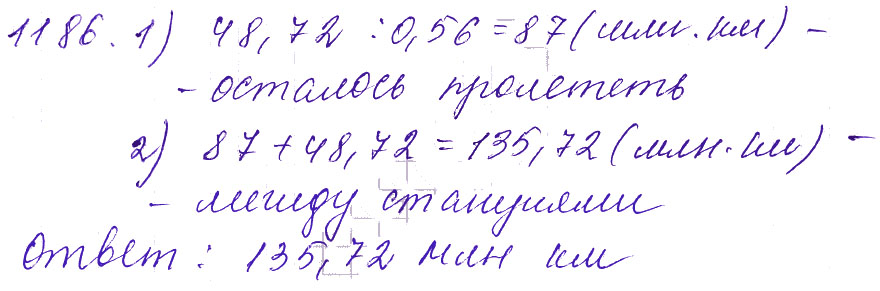 1186. 1) 48,72 : 0,56 = 87 (млн. км) –
– осталось пролететь
2) 87 + 48,72 = 135,72 (млн. км) –
– между станциями
Ответ: 135,72 млн км